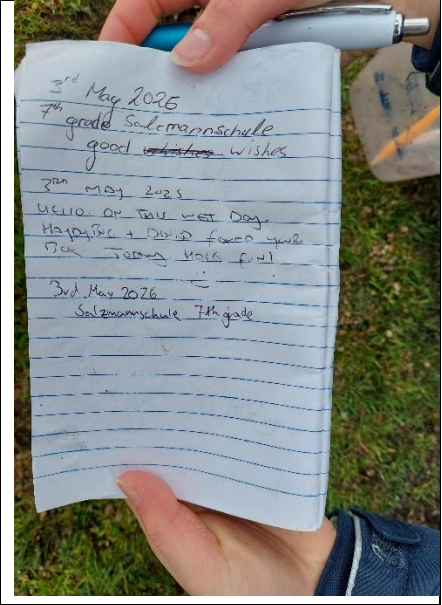 3rd May 2026
7th grade Salzmannschule
good wishes
3RD MAY 2025
HELLO ON THIS WET DAY.
+ DAVID FOUND YOUR
BOX FUN!
:)
3rd May 2026
Salzmannschule 7th grade